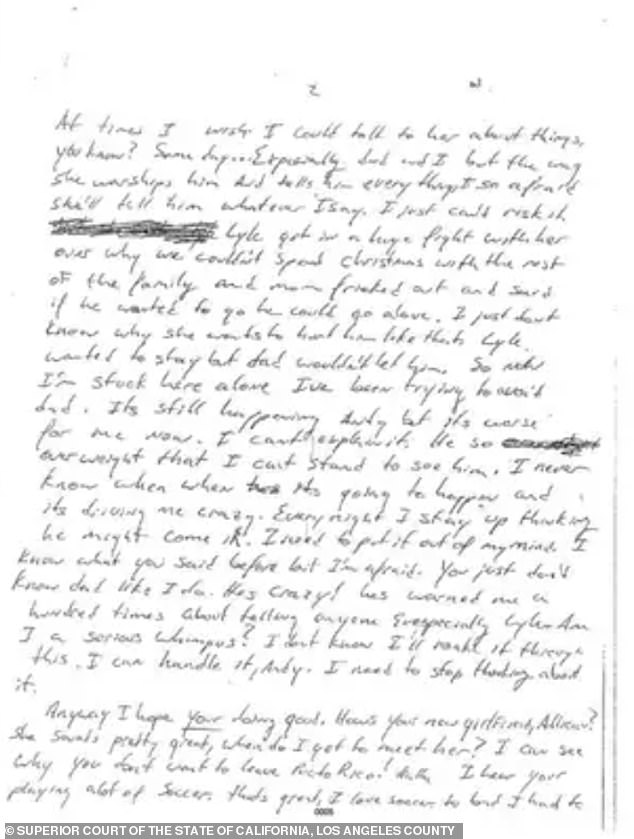 2
At times I wish I could talk to her about things,
you know? Some day... Especially dad and I but the way
she worships him and tells him everything I so afraid
she'll tell him whatever I say. I just can't risk it.
Lyle got in a huge fight with her
over why we couldn't spend Christmas with the rest
of the family and mom freaked out and said
if he wanted to go he could go alone. I just dont
know why she wants to hurt him like that. Lyle
wanted to stay but dad wouldn't let him. So now
I'm stuck here alone I've been trying to avoid
dad. Its still happening Andy but its worse
for me now. I cant explain it. He so
overweight that I cant stand to see him. I never
know when when its going to happen and
its driving me crazy. Every night I stay up thinking
he might come in. I need to put it out of my mind. I
know what you said before but I'm afraid. You just don't
know dad like I do. Hes crazy! hes warned me a
hundred times about telling anyone especially Lyle. Am
I a serious whimpus? I dont know I'll make it through
this. I can handle it, Andy. I need to stop thinking about
it.
Anyway I hope your doing good. How's your new girlfriend,
She sounds pretty great, when do I get to meet her? I can see
why you dont want to leave Puerto Rico! I hear your
playing alot of soccer. thats great, I love soccer to but I had to
© SUPERIOR COURT OF THE STATE OF CALIFORNIA, LOS ANGELES COUNTY